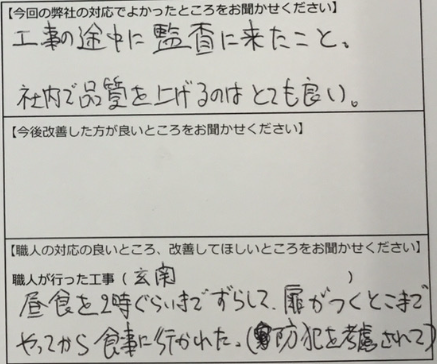 【今回の弊社の対応でよかったところをお聞かせください】
工事の途中に監査に来たこと。
社内で品質を上げるのはとても良い。
【今後改善した方が良いところをお聞かせください】
【職人の対応の良いところ、改善してほしいところをお聞かせください】
職人が行った工事（玄関）
昼食を2時ぐらいまでずらして、扉がつくとこまで
やってから食事に行かれた。(防犯を考慮されて)